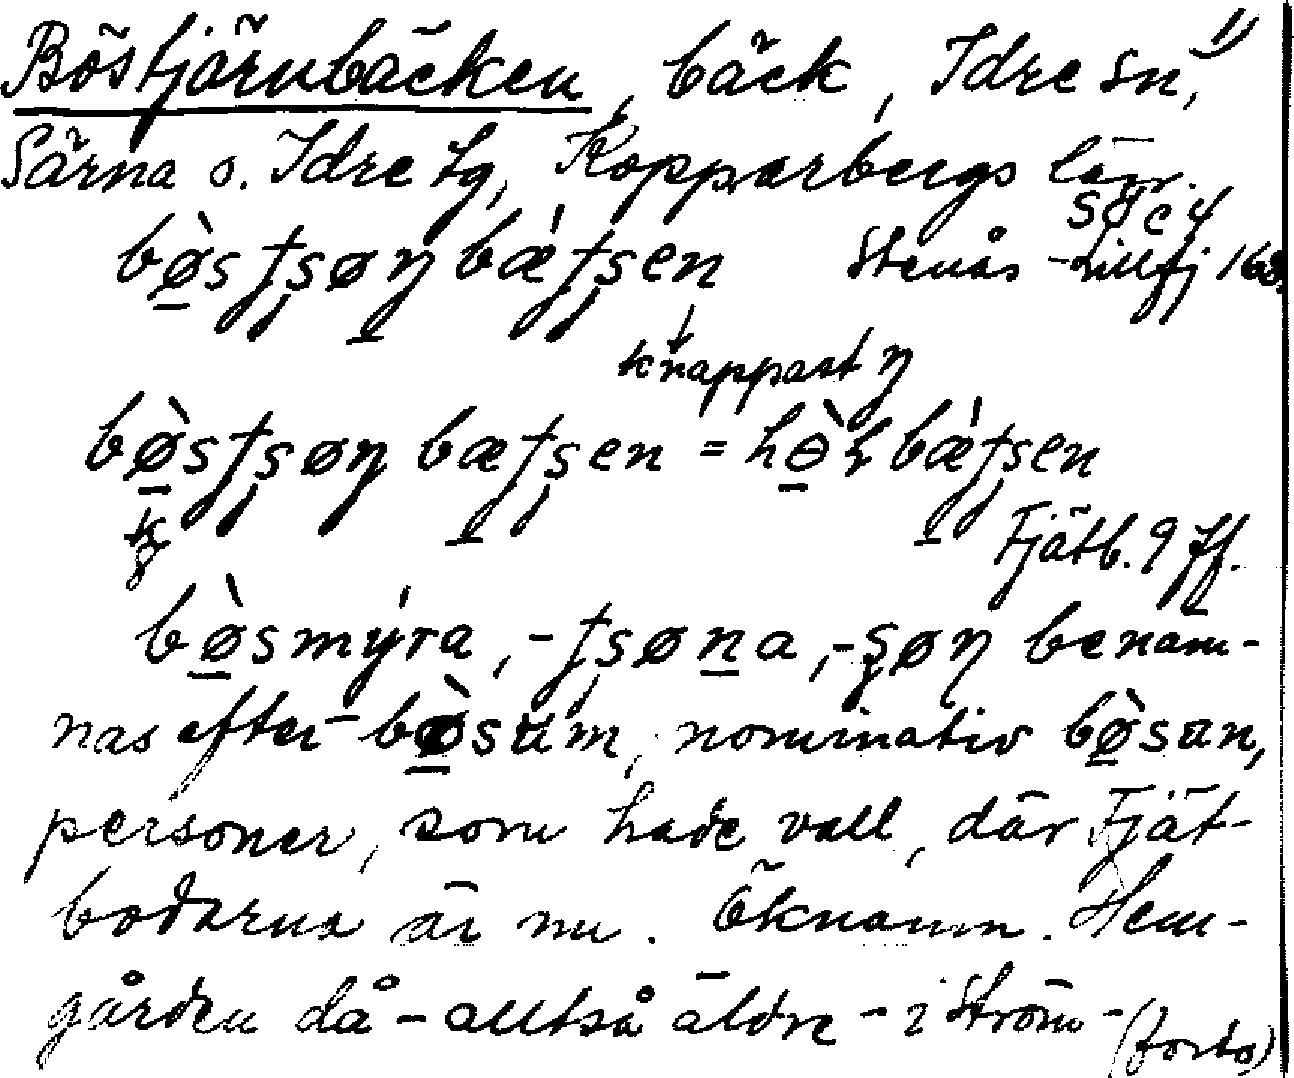 Böstjärnbäcken, bäck, Idre sn, 1)
Särna o. Idre tg, Kopparbergs län.
SO c 4
bø̀stʂøɲbǽtʂen Stenås - Lillfj 168.
knappast ŋ
bø̀stʂøɲ bætʂen = hɵ̀ɽbǽtʂen
Fjätb. 9 ff.
bø̀smýra, -tʂøna, -ʂøɲ benäm-
nas efter bø̀sum, nominativ bø̀san,
personer, som hade vall, där Fjät-
bodarna är nu. Öknamn. Hem-
gården då - alltså äldre - i Ström-
(forts)